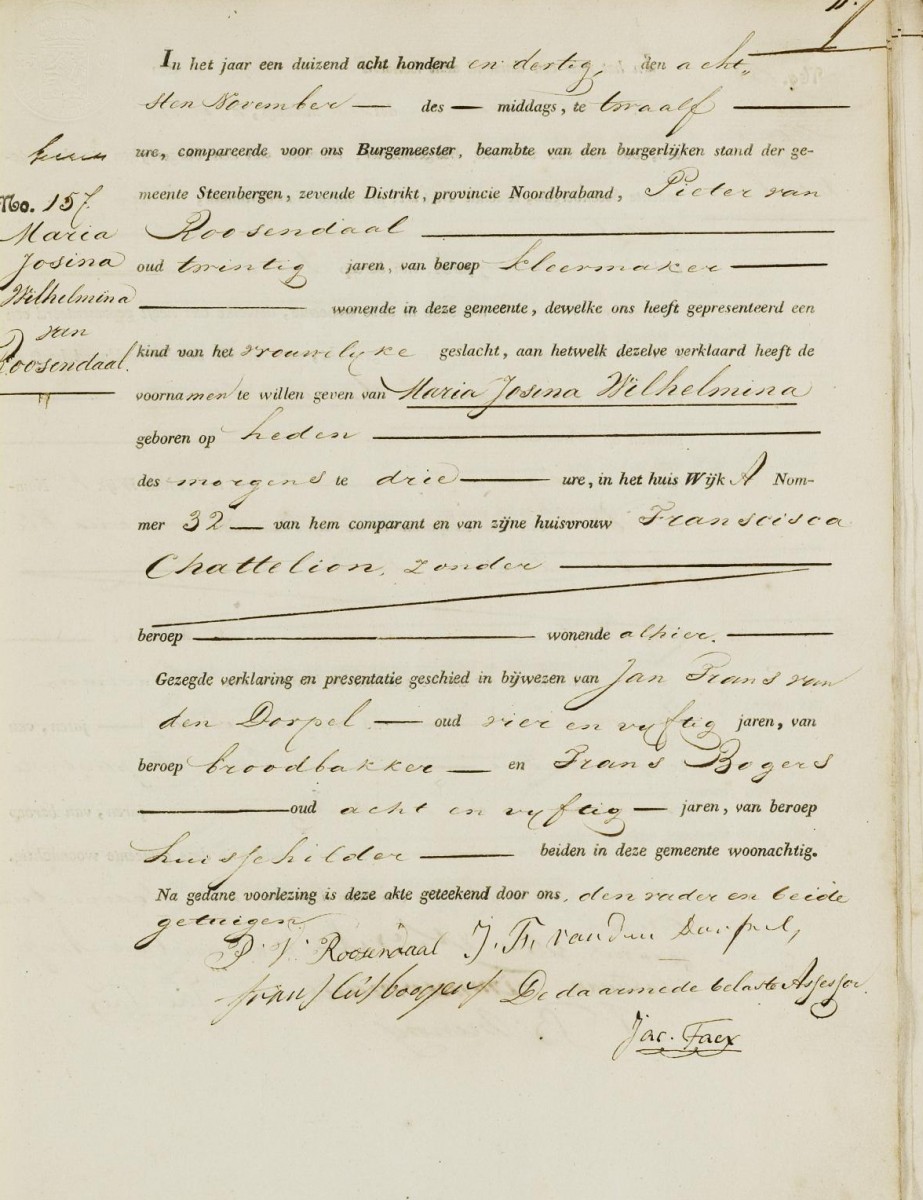 In het jaar een duizend acht honderd en dertig, den acht-
sten November — des — middags, te twaalf —
ure, compareerde voor ons Burgemeester, beambte van den burgerlijken stand der ge-
meente Steenbergen, zevende Distrikt, provincie Noordbraband, Pieter van
Roosendaal —
oud twintig jaren, van beroep kleermaker —
— wonende in deze gemeente, dewelke ons heeft gepresenteerd een
kind van het vrouwelyke geslacht, aan hetwelk dezelve verklaard heeft de
voornamen te willen geven van Maria Josina Wilhelmina
geboren op heden —
des morgens te drie — ure, in het huis Wijk A Nom-
mer 32 — van hem comparant en van zijne huisvrouw Franscisca
Chattelion, zonder —
beroep — wonende alhier. —
Gezegde verklaring en presentatie geschied in bijwezen van Jan Frans van
den Dorpel — oud vier en vyftig jaren, van
beroep broodbakker — en Frans Bogers
— oud acht en vyftig — jaren, van beroep
huisschilder — beiden in deze gemeente woonachtig.
Na gedane voorlezing is deze akte geteekend door ons, den vader en beide
getuigen
P. V. Roosendaal J. Fr. van den Dorpel,
De daarmede belaste Assessor.
Jac. Faex
No. 157.
Maria
Josina
Wilhelmina
van
Roosendaal.